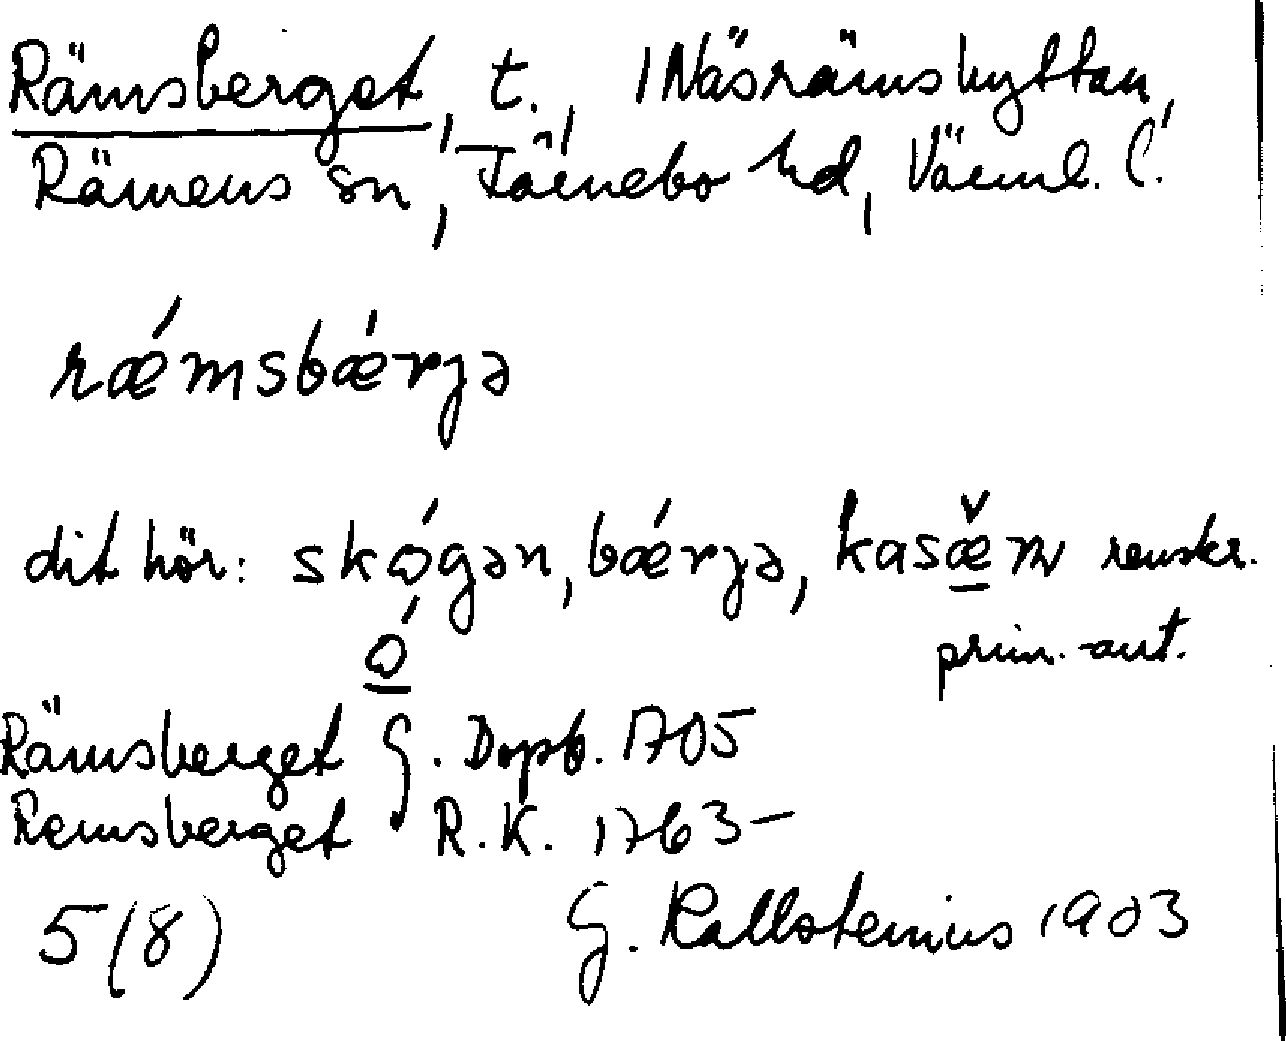 Rämsberget, t., 1 Näsrämshyttan,
Rämens sn, Färnebo hd, Värml. l.
rǽmsbǽrjə
dit hör: skǫ́gən, bǽrjə, kasæ̌m renskr.
ǫ́ prim.-ant.
Rämsberget G. Dopb. 1705
Remsberget R.K. 1763–
5(8) G. Kallstenius 1903